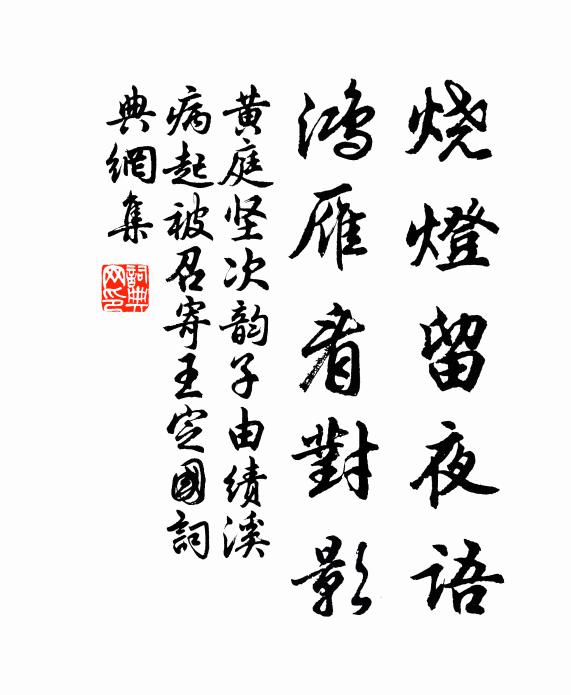 烧燈留夜语
鸿雁看對影
黄庭坚次韵子由绩溪
病起被召寄王定國詞
典網集
詞典網印